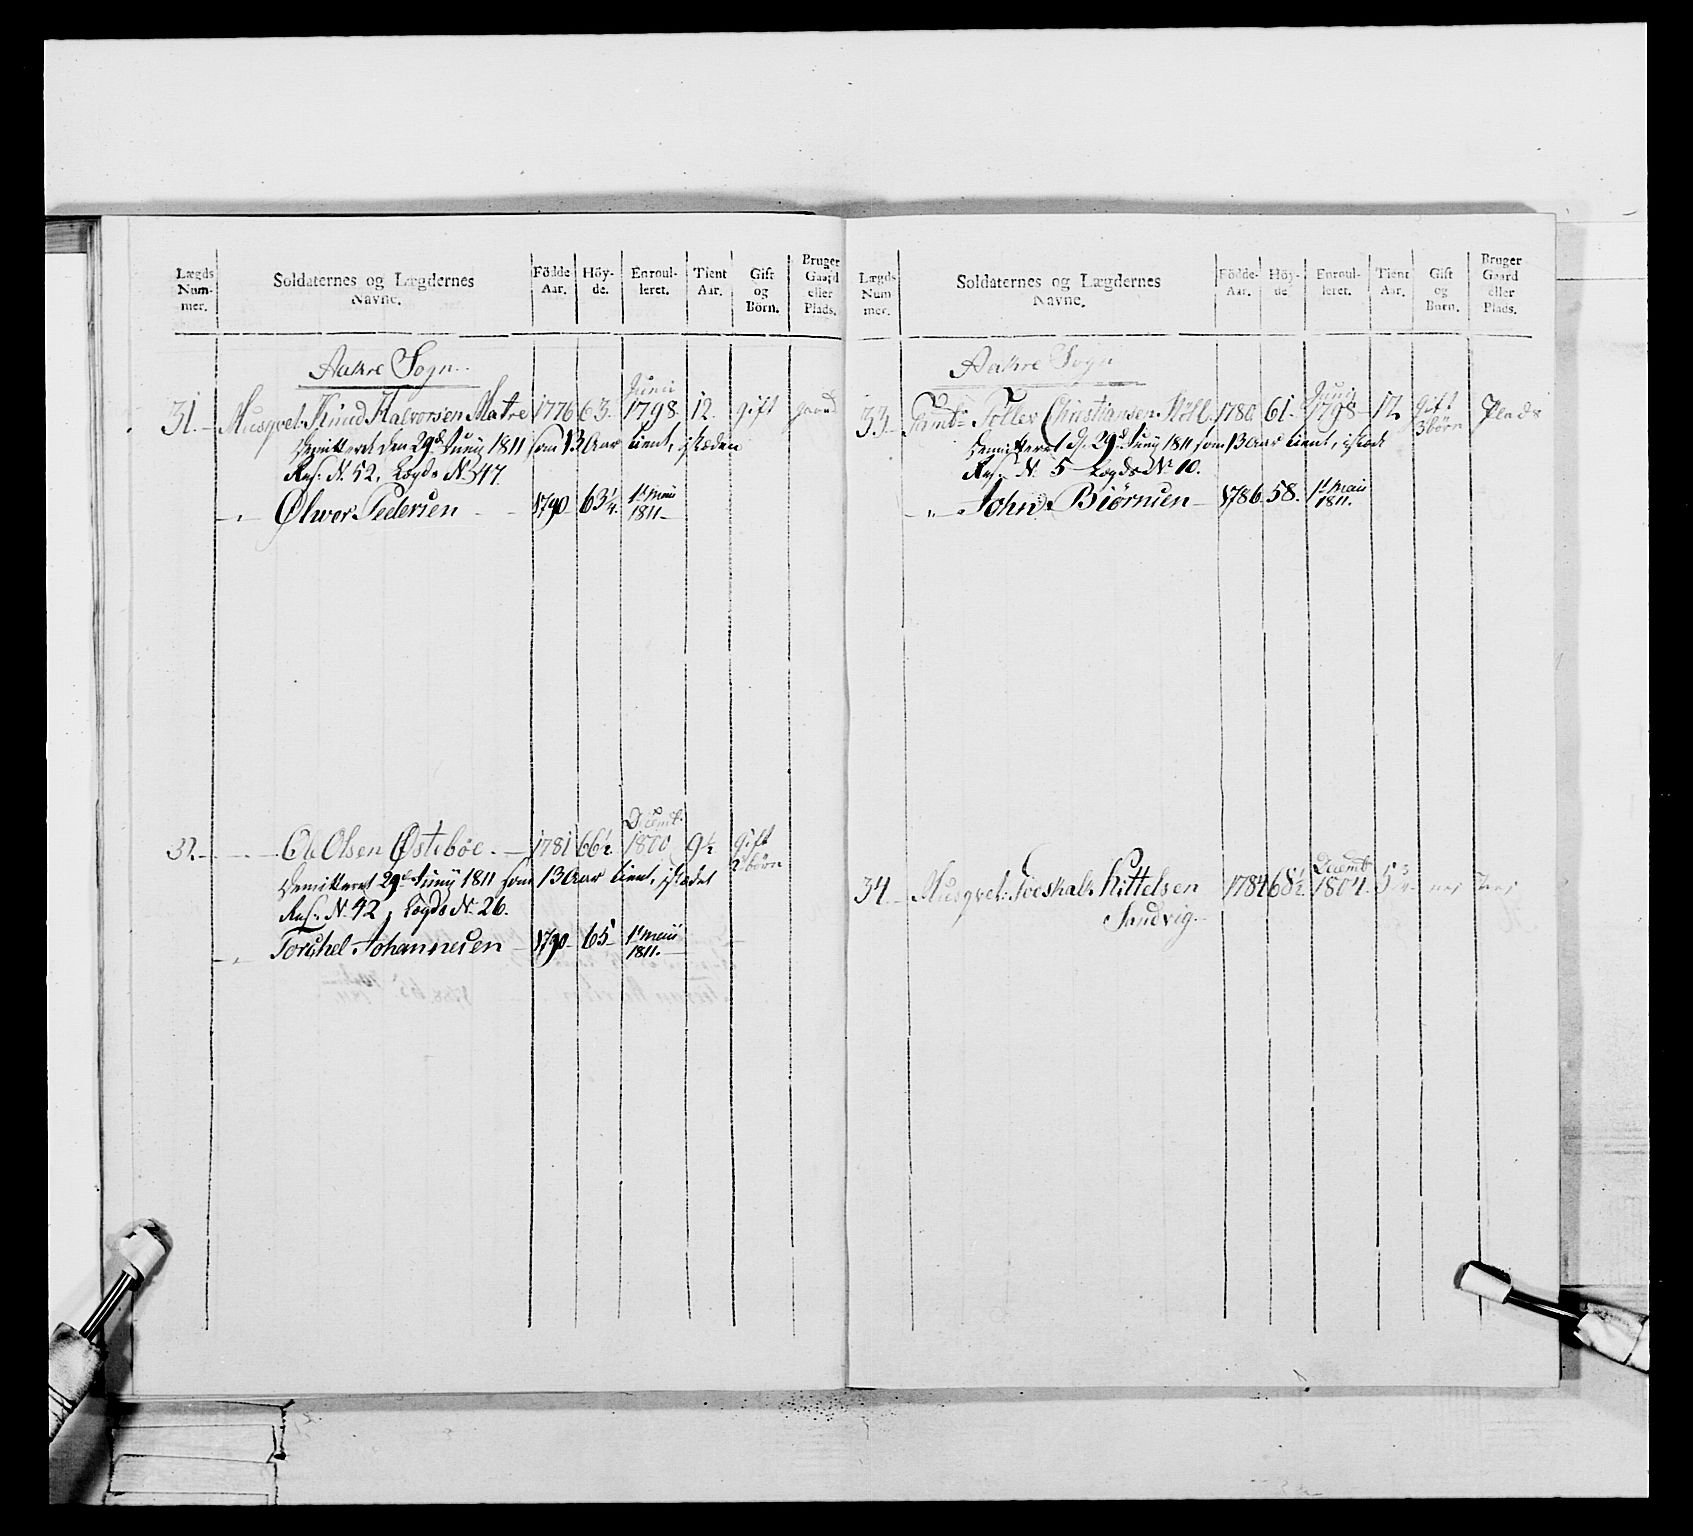 Lægds Num- mer. Soldaternes og Lægdernes Navne. Födde Aar. Höy- de. Enroul- leret. Tient Aar. Gift og Börn. Bruger Gaard eller Plads.
Aakre Sogn.
31. Musqvet. Knud Halvorsen Matre 1776 63. Junii 1798 12. gift gaard
Demitteret den 29d Juny 1811 som 13 Aar tient, istæden
Res: N. 52, Lægds N. 47.
— „ — Olwer Pedersen — 1790 63¼. 1t Maii 1811 —
32. — Ole Olsen Östeböe. — 1781 66½ Decemb. 1800 9½ Gift 2 börn
Demitteret 29d Juny 1811 som 13 Aar tient, istædet
Res. N. 42, Lægds N. 26.
— „ Torchel Johannesen — 1790 65 1t Maii 1811. —
Lægds Num mer. Soldaternes og Lægdernes Navne. Födde- Aar. Höy- de. Enroul- leret. Tient Aar. Gift og Börn. Bruger Gaard eller Plads.
Aakre Sogn
33. Tamb. Tollev Christiansen 1780 61. Junii 1798 12 Gift 3 börn Plads
Demitteret d. 29d Juny 1811 som 13 Aar tient, istæde
Res. N. 5 Lægds N. 10.
„ John Biörnsen — 1786 58. 1t Maii 1811.
34. Musqvet. Kittelsen 1784 68½ Decemb 1804. 5¾ nej
Sandvig.